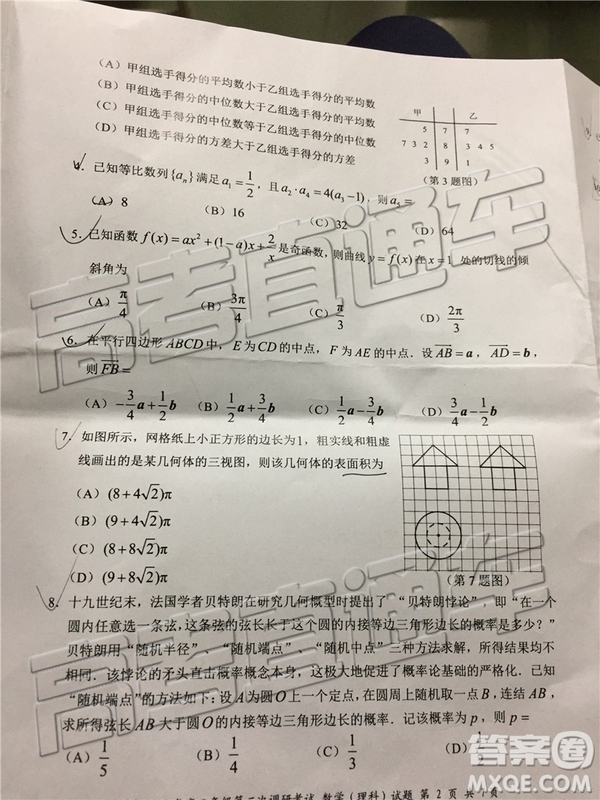 (A) 甲组选手得分的平均数小于乙组选手得分的平均数
(B) 甲组选手得分的中位数大于乙组选手得分的平均数
(C) 甲组选手得分的中位数等于乙组选手得分的中位数
(D) 甲组选手得分的方差大于乙组选手得分的方差
甲 乙
5 7 7
7 3 2 8 3 4 5
3 9 1
(第 3 题图)
4. 已知等比数列{aₙ}满足 a₁=1/2，且 a₂·a₄=4(a₃−1)，则 a₅=
(A) 8 (B) 16 (C) 32 (D) 64
5. 已知函数 f(x)=ax²+(1−a)x+2/x 是奇函数，则曲线 y=f(x) 在 x=1 处的切线的倾
斜角为
(A) π/4 (B) 3π/4 (C) π/3 (D) 2π/3
6. 在平行四边形 ABCD 中，E 为 CD 的中点，F 为 AE 的中点．设 AB=a，AD=b，
则 FB=
(A) −3/4a+1/2b (B) 1/2a+3/4b (C) 1/2a−3/4b (D) 3/4a−1/2b
7. 如图所示，网格纸上小正方形的边长为1，粗实线和粗虚
线画出的是某几何体的三视图，则该几何体的表面积为
(A) (8+4√2)π
(B) (9+4√2)π
(C) (8+8√2)π
(D) (9+8√2)π
(第 7 题图)
8. 十九世纪末，法国学者贝特朗在研究几何概型时提出了“贝特朗悖论”，即“在一个
圆内任意选一条弦，这条弦的弦长长于这个圆的内接等边三角形边长的概率是多少？”
贝特朗用“随机半径”、“随机端点”、“随机中点”三种方法求解，所得结果均不
相同．该悖论的矛头直击概率概念本身，这极大地促进了概率论基础的严格化．已知
“随机端点”的方法如下：设 A 为圆 O 上一个定点，在圆周上随机取一点 B，连结 AB，
求所得弦长 AB 大于圆 O 的内接等边三角形边长的概率．记该概率为 p，则 p=
(A) 1/5 (B) 1/4 (C) 1/3 (D) 1/2
数学(理科)试题 第 2 页
高考直通车
高考直通车
MXQE.COM